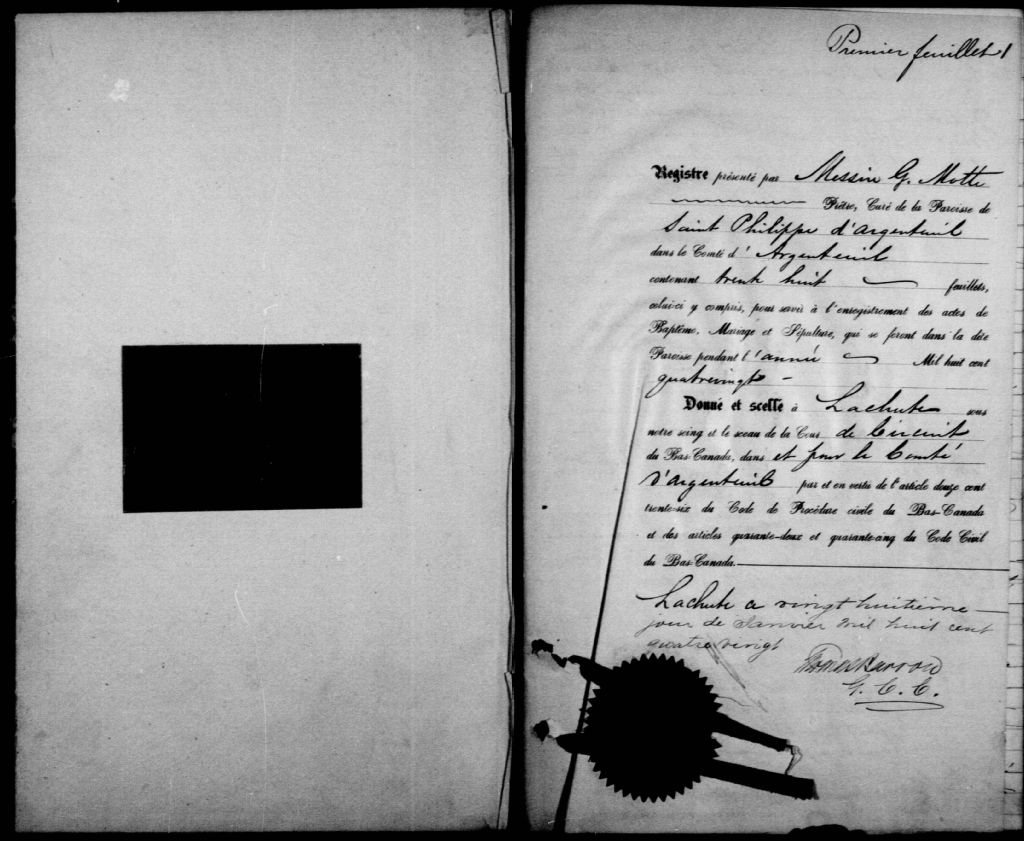 Premier feuillet 1
Registre présenté par Messire G. Motte
Prêtre, Curé de la Paroisse de
Saint Philippe d'Argenteuil
dans le Comté d'Argenteuil
contenant trente huit feuillets,
celui-ci y compris, pour servir à l'enregistrement des actes de
Baptême, Mariage et Sépulture, qui se feront dans la dite
Paroisse pendant l'année Mil huit cent
quatrevingt -
Donné et scellé à Lachute sous
notre seing et le sceau de la Cour de Circuit
du Bas-Canada, dans et pour le Comté
D'argenteuil par et en vertu de l'article douze cent
trente-six du Code de Procédure civile du Bas-Canada
et des articles quarante-deux et quarante-cinq du Code Civil
du Bas-Canada.
Lachute ce vingt huitième
jour de Janvier mil huit cent
quatre vingt
Barron
G. C. C.